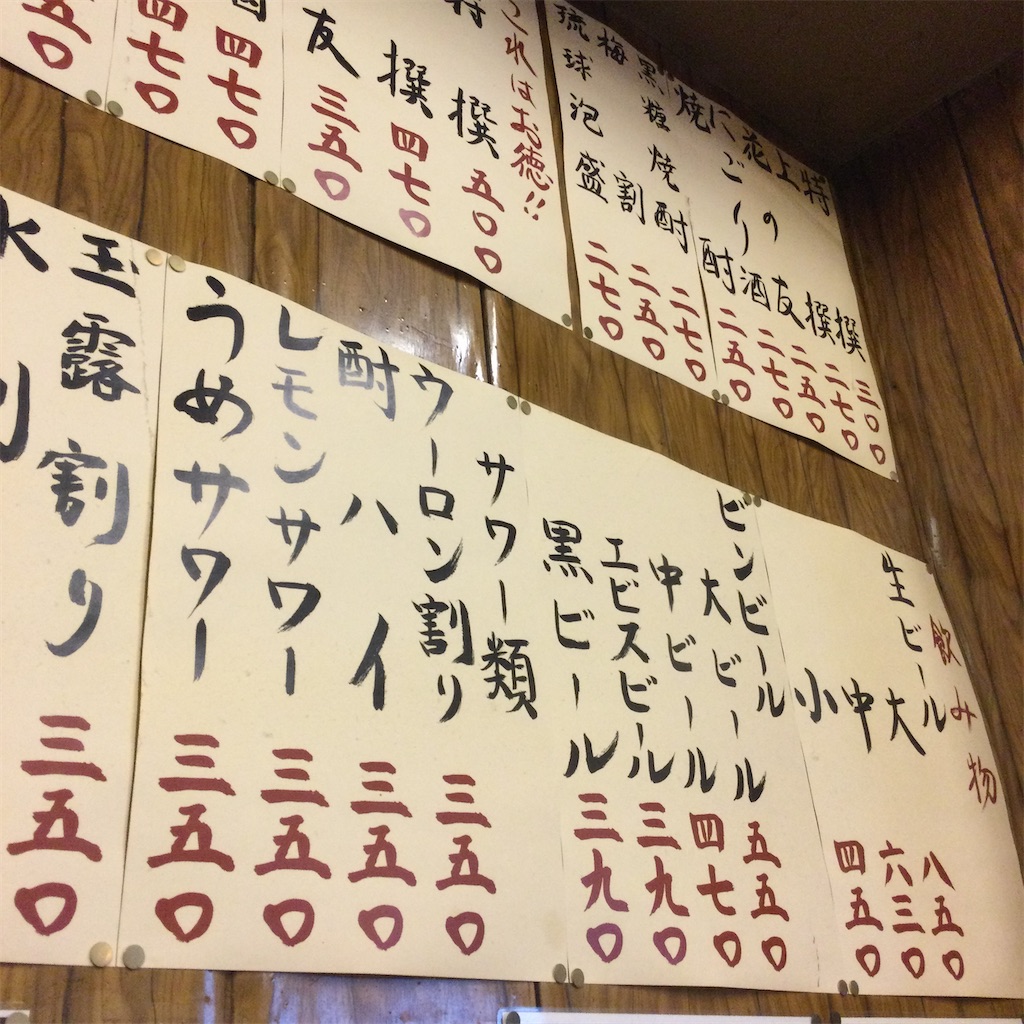 特撰 三〇〇
上撰 二七〇
花の友 二五〇
にごり酒 二七〇
焼酎 二五〇
黒糖焼酎 二七〇
梅割 二五〇
琉球泡盛 二七〇
これはお徳!!
特撰 五〇〇
撰 四七〇
友 三五〇
四七〇
四七〇
五〇
飲み物
生ビール
大 八五〇
中 六三〇
小 四五〇
ビンビール
大ビール 五五〇
中ビール 四七〇
エビスビール 三九〇
黒ビール 三九〇
サワー類
ウーロン割り 三五〇
酎ハイ 三五〇
レモンサワー 三五〇
うめサワー 三五〇
玉露割り 三五〇
水